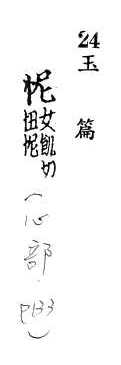 24
玉篇
怩
女飢切
忸怩
(心部.P133)